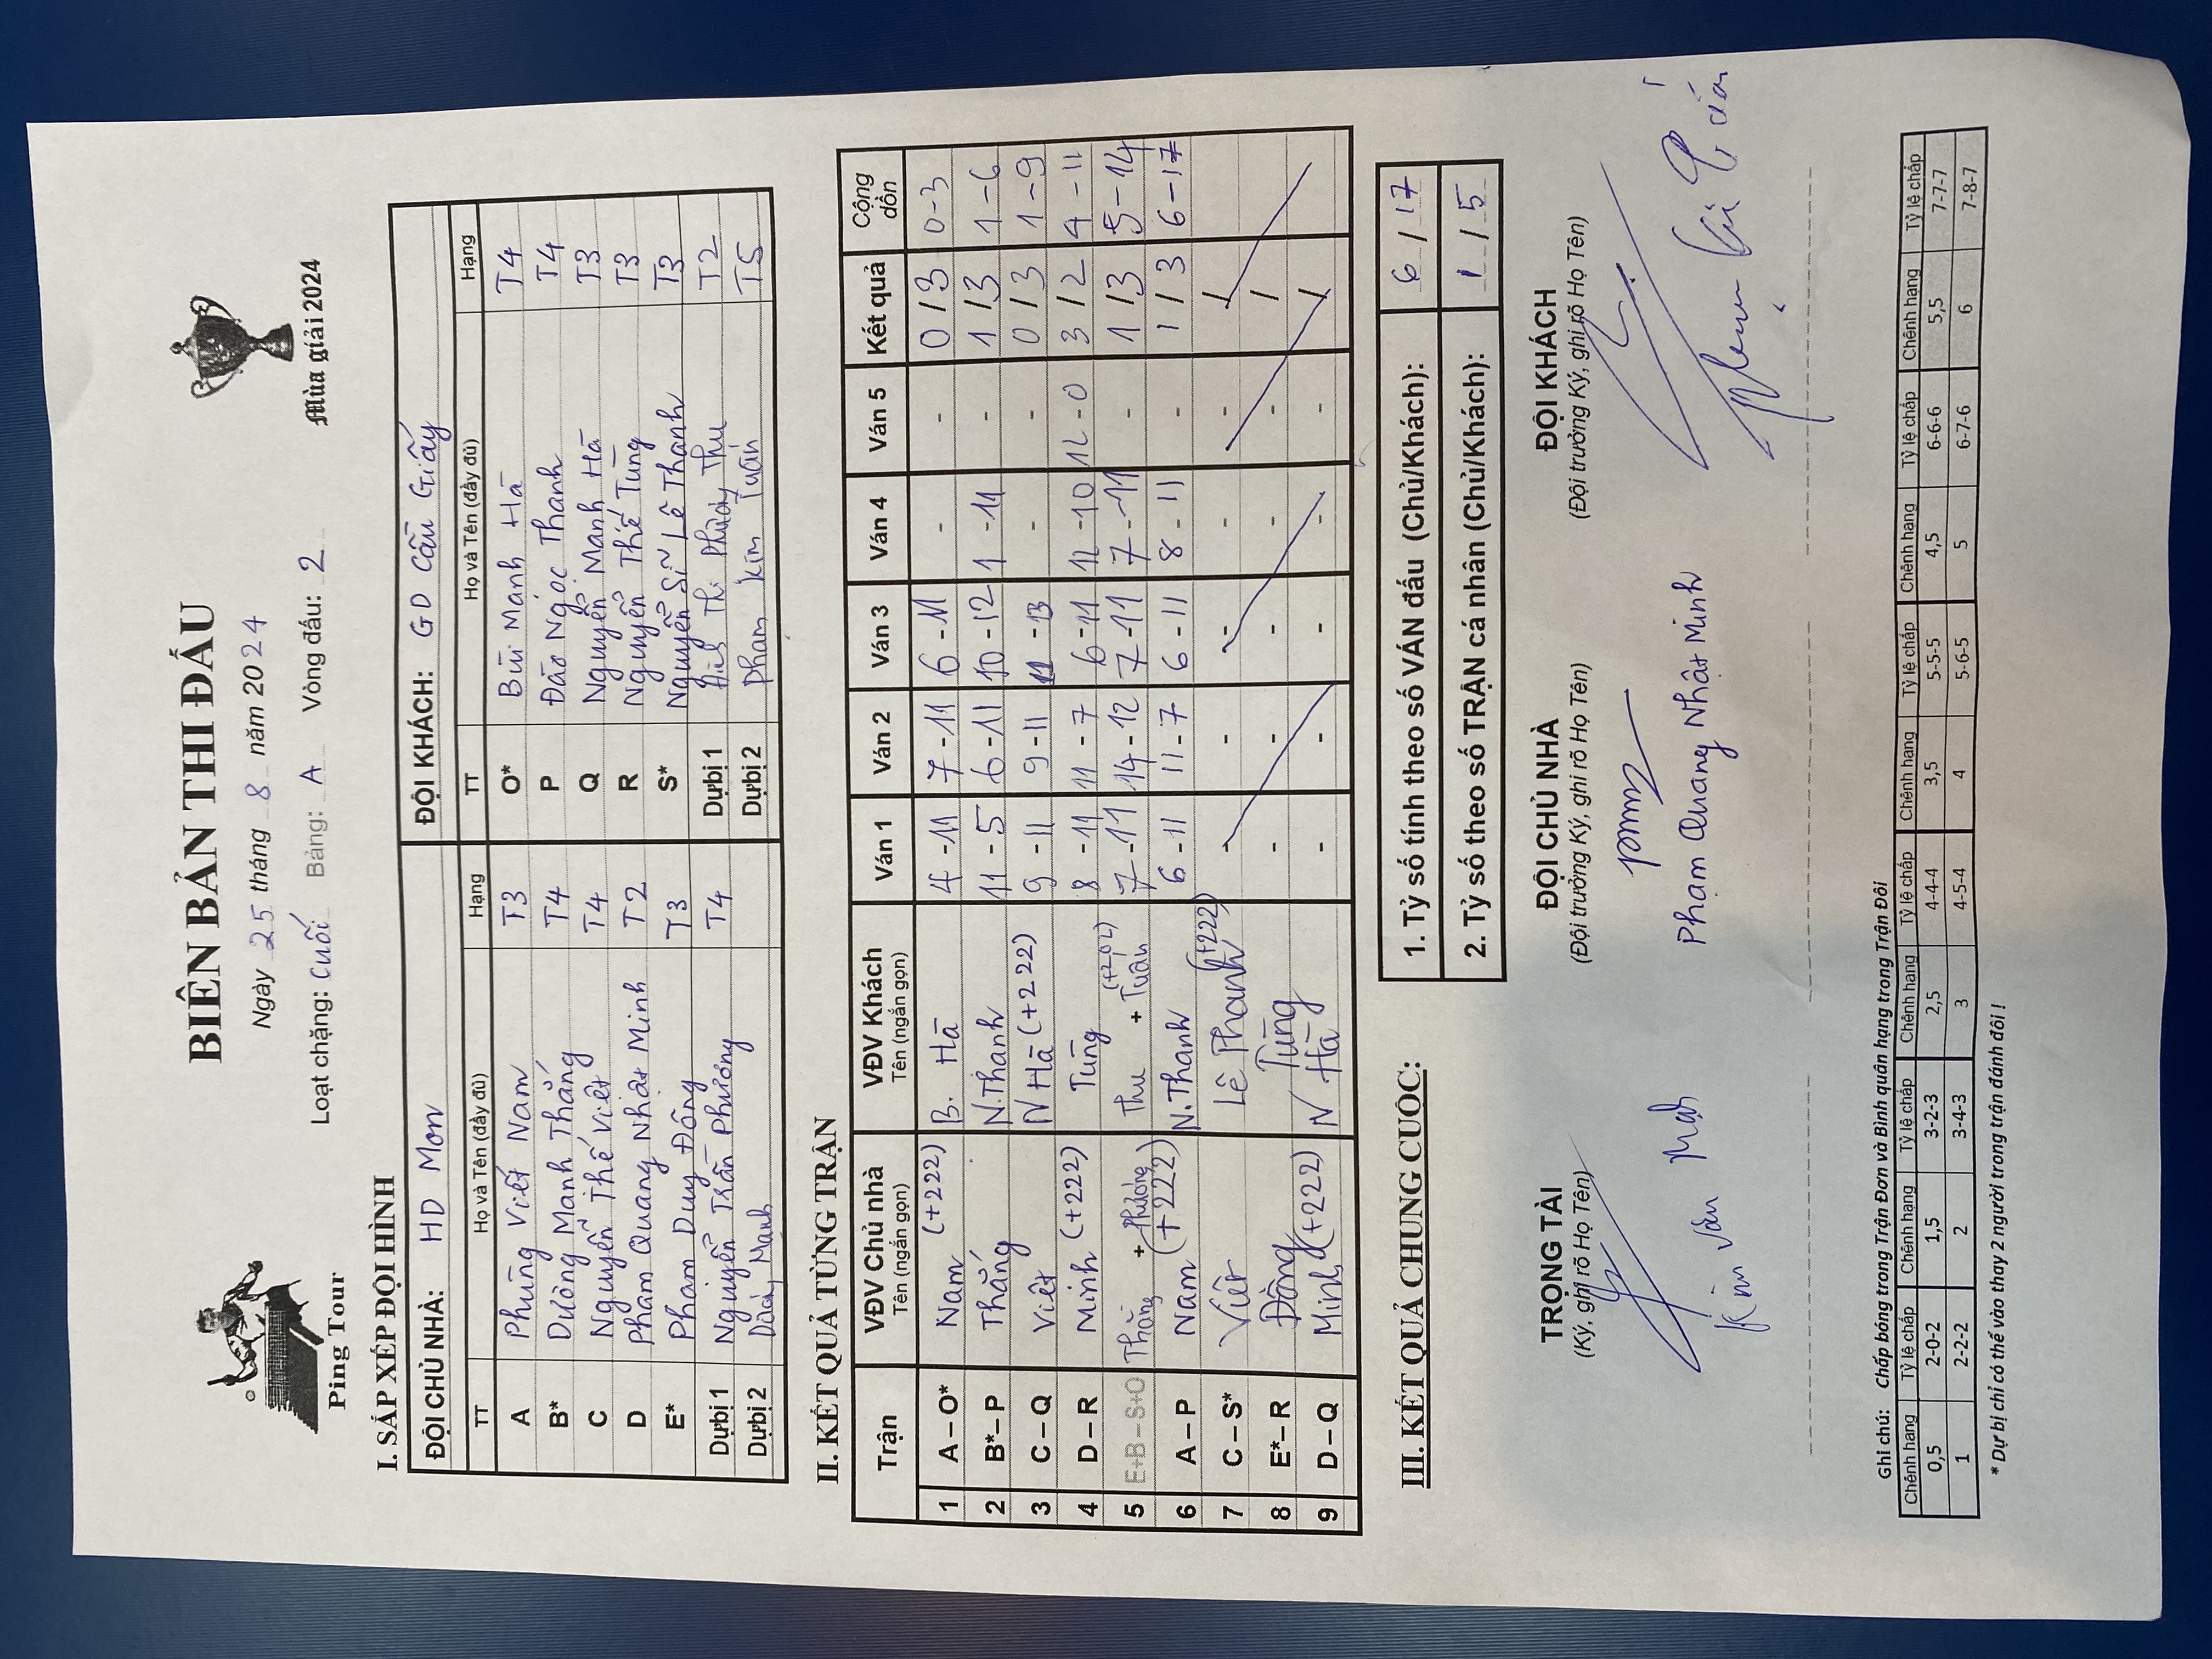 Ping Tour
BIÊN BẢN THI ĐẤU
Ngày 25 tháng 8 năm 2024
Loạt chặng: Cuối Bảng: A Vòng đấu: 2
Mùa giải 2024
I. SẮP XẾP ĐỘI HÌNH
ĐỘI CHỦ NHÀ: HD Mon ĐỘI KHÁCH: GD Cầu Giấy
TT Họ và Tên (đầy đủ) Hạng TT Họ và Tên (đầy đủ) Hạng
A Phùng Viết Nam T3 O* Bùi Mạnh Hà T4
B* Dương Mạnh Thắng T4 P Đào Ngọc Thanh T4
C Nguyễn Thế Việt T4 Q Nguyễn Mạnh Hà T3
D Phạm Quang Nhật Minh T2 R Nguyễn Thế Tùng T3
E* Phạm Duy Đông T3 S* Nguyễn Sĩ Lê Thanh T3
Dự bị 1 Nguyễn Trần Phương T4 Dự bị 1 Đinh Thị Phương Thu T2
Dự bị 2 Mạnh Dự bị 2 Phạm Kim Tuấn T5
II. KẾT QUẢ TỪNG TRẬN
Trận VĐV Chủ nhà VĐV Khách Ván 1 Ván 2 Ván 3 Ván 4 Ván 5 Kết quả Cộng dồn
Tên (ngắn gọn) Tên (ngắn gọn)
1 A – O* Nam (+222) B. Hà 4 - 11 7 - 11 6 - 11 - - 0 / 3 0-3
2 B* – P Thắng N.Thanh 11 - 5 6 - 11 10 - 12 1 - 11 - 1 / 3 1-6
3 C – Q Việt N Hà (+222) 9 - 11 9 - 11 11 - 13 - - 0 / 3 1-9
4 D – R Minh (+222) Tùng 8 - 11 11 - 7 6 - 11 12 - 10 12 - 0 3 / 2 4-11
5 E+B – S+O Thắng + Phương Thu + Tuấn (+202) 7 - 11 14 - 12 7 - 11 7 - 11 - 1 / 3 5-14
6 A – P Nam (+222) N.Thanh 6 - 11 11 - 7 6 - 11 8 - 11 - 1 / 3 6-17
7 C – S* Việt Lê Thanh (+222) - - - - - /
8 E* – R Đông Tùng - - - - - /
9 D – Q Minh (+222) N Hà - - - - - /
III. KẾT QUẢ CHUNG CUỘC:
1. Tỷ số tính theo số VÁN đấu (Chủ/Khách): 6 / 17
2. Tỷ số theo số TRẬN cá nhân (Chủ/Khách): 1 / 5
TRỌNG TÀI ĐỘI CHỦ NHÀ ĐỘI KHÁCH
(Ký, ghi rõ Họ Tên) (Đội trưởng Ký, ghi rõ Họ Tên) (Đội trưởng Ký, ghi rõ Họ Tên)
Kim Văn Phạm Quang Nhật Minh
Ghi chú: Chấp bóng trong Trận Đơn và Bình quân hạng trong Trận Đôi
Chênh hạng Tỷ lệ chấp Chênh hạng Tỷ lệ chấp Chênh hạng Tỷ lệ chấp Chênh hạng Tỷ lệ chấp Chênh hạng Tỷ lệ chấp Chênh hạng Tỷ lệ chấp
0,5 2-0-2 1,5 3-2-3 2,5 4-4-4 3,5 5-5-5 4,5 6-6-6 5,5 7-7-7
1 2-2-2 2 3-4-3 3 4-5-4 4 5-6-5 5 6-7-6 6 7-8-7
* Dự bị chỉ có thể vào thay 2 người trong trận đánh đôi !